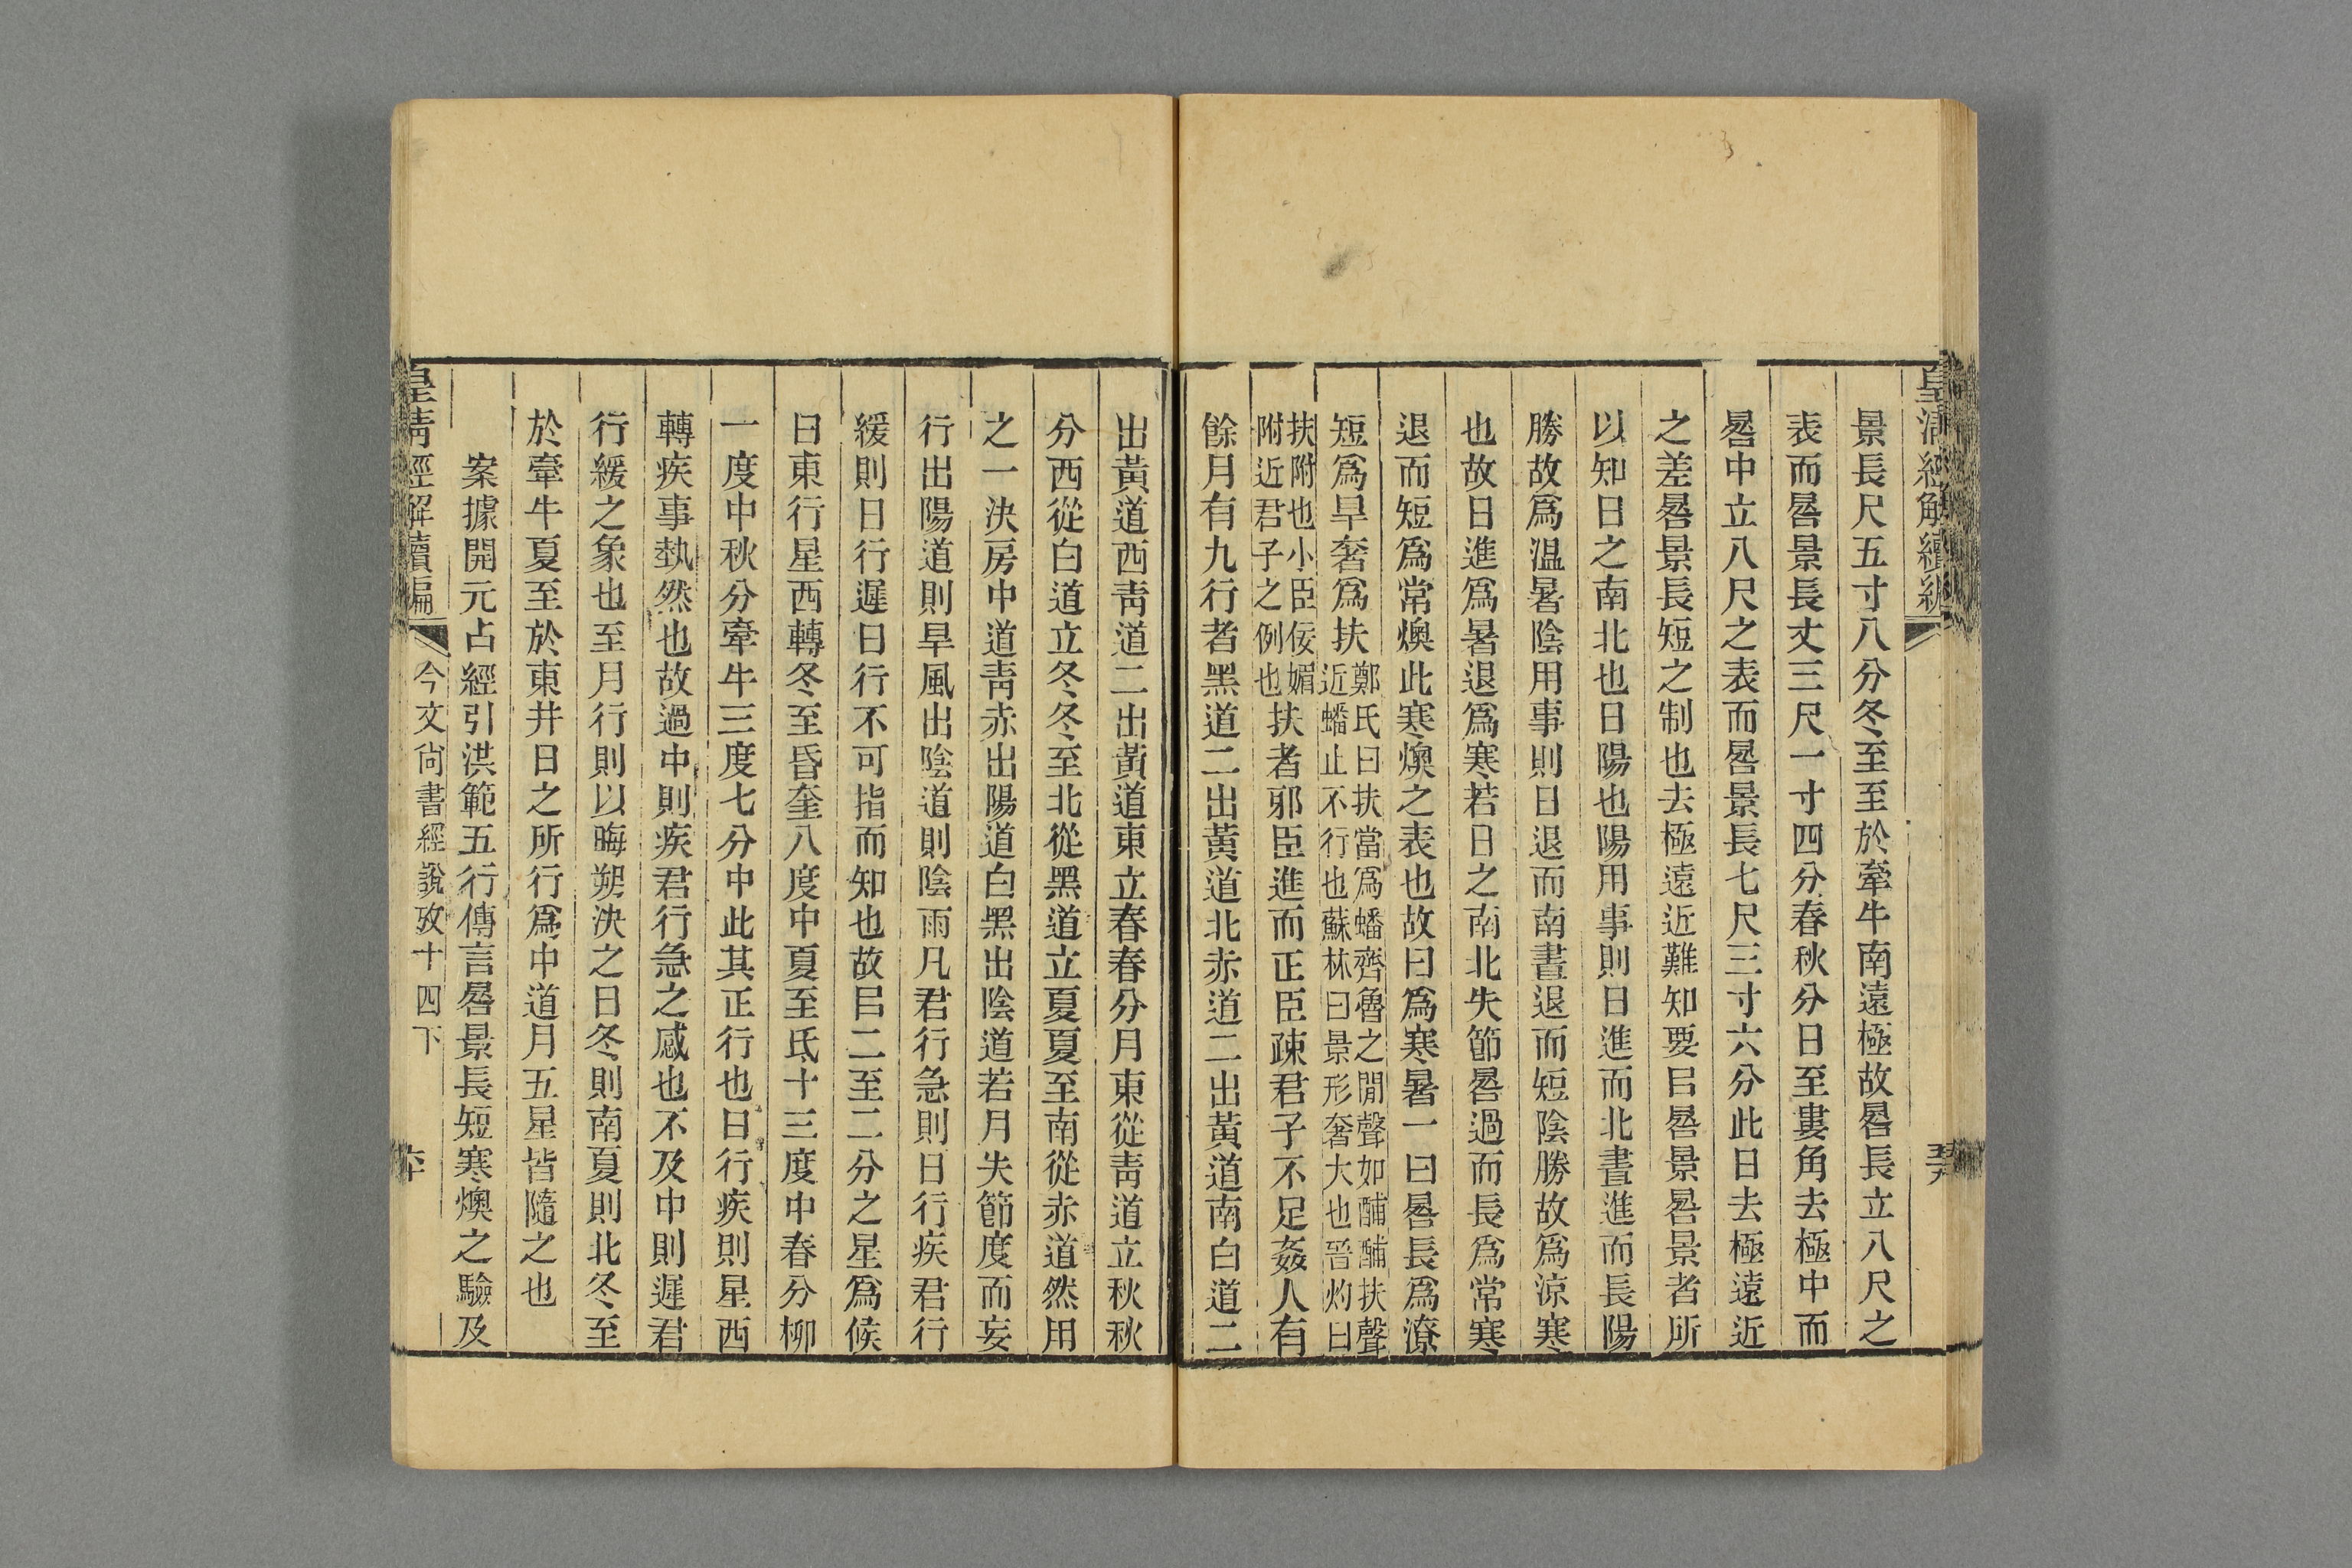 皇清經解續編
景長尺五寸八分冬至至於牽牛南遠極故晷長立八尺之
表而晷景長丈三尺一寸四分春秋分日至婁角去極中而
晷中立八尺之表而晷景長七尺三寸六分此日去極遠近
之差晷景長短之制也去極遠近難知要㠯晷景晷景者所
以知日之南北也日陽也陽用事則日進而北晝進而長陽
勝故爲溫暑陰用事則日退而南晝退而短陰勝故爲涼寒
也故日進爲暑退爲寒若日之南北失節晷過而長爲常寒
退而短爲常燠此寒燠之表也故曰爲寒暑一曰晷長爲潦
短爲旱奢爲扶鄭氏曰扶當爲蟠齊魯之閒聲如酺酺扶聲近蟠止不行也蘇林曰景形奢大也晉灼曰
扶附也小臣佞媚附近君子之例也扶者邪臣進而正臣疎君子不足姦人有
餘月有九行者黑道二出黃道北赤道二出黃道南白道二
出黃道西靑道二出黃道東立春春分月東從靑道立秋秋
分西從白道立冬冬至北從黑道立夏夏至南從赤道然用
之一決房中道靑赤出陽道白黑出陰道若月失節度而妄
行出陽道則旱風出陰道則陰雨凡君行急則日行疾君行
緩則日行遲日行不可指而知也故㠯二至二分之星爲候
日東行星西轉冬至昏奎八度中夏至氐十三度中春分柳
一度中秋分牽牛三度七分中此其正行也日行疾則星西
轉疾事埶然也故過中則疾君行急之感也不及中則遲君
行緩之象也至月行則以晦朔決之日冬則南夏則北冬至
於牽牛夏至於東井日之所行爲中道月五星皆隨之也
案據開元占經引洪範五行傳言晷景長短寒燠之驗及
皇清經解續編 今文尙書經說攷十四下